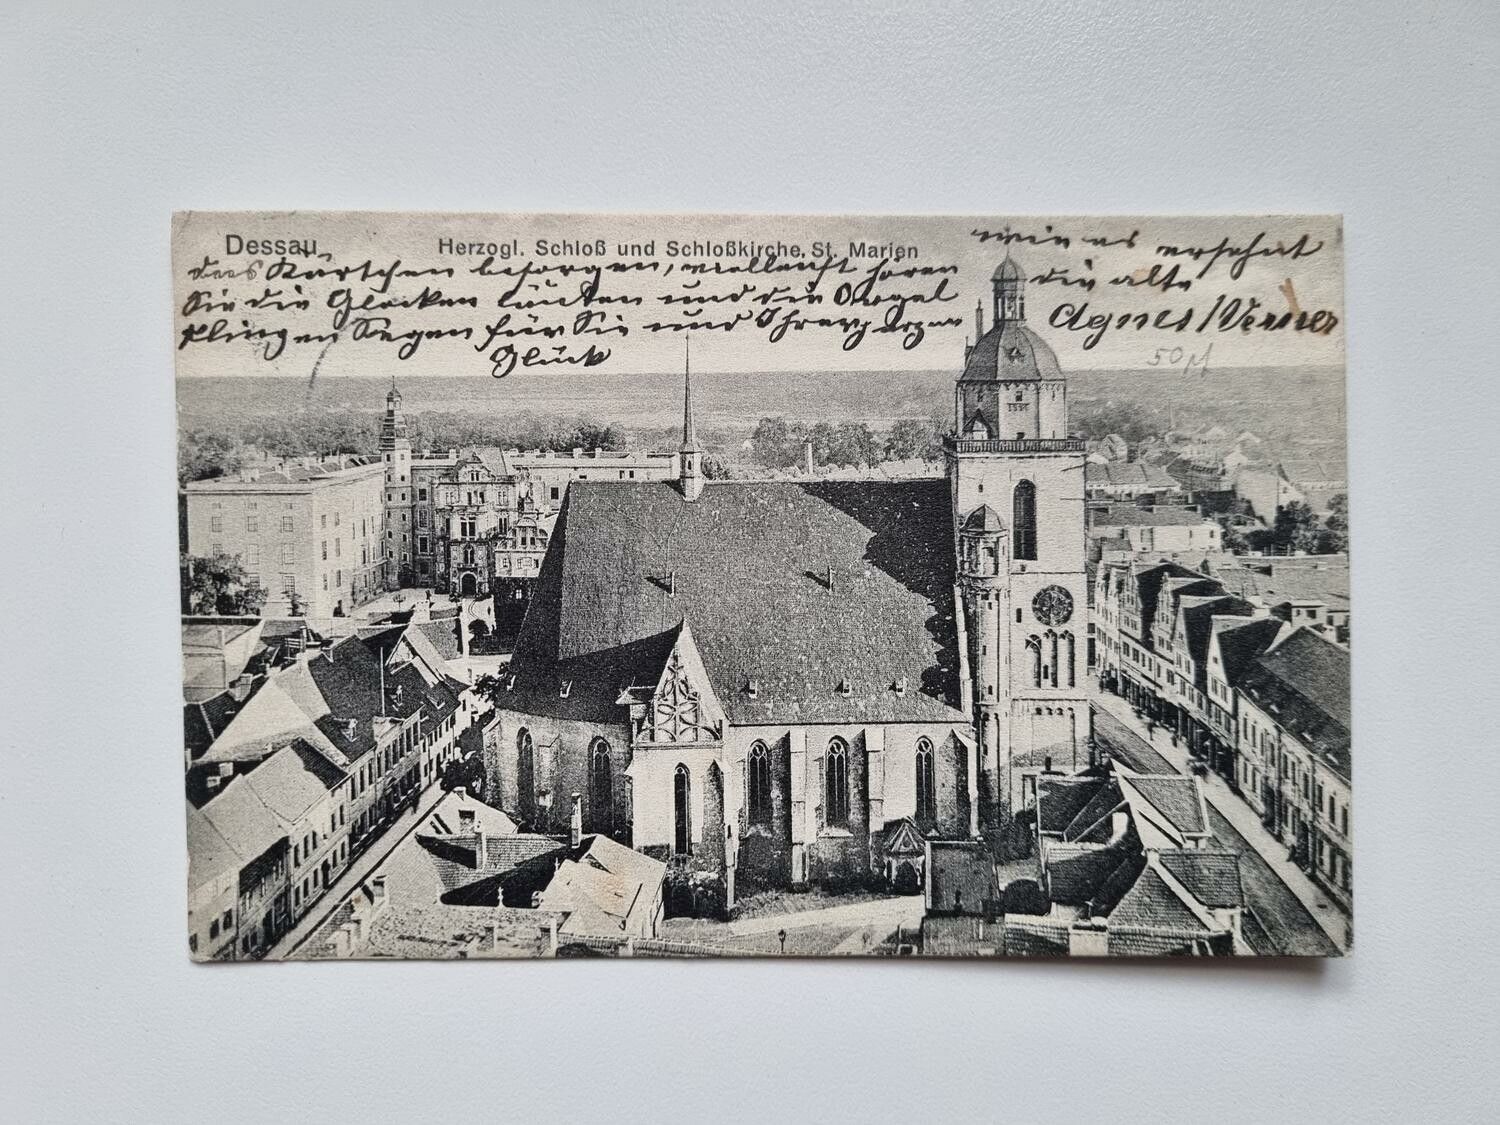 Dessau
Herzogl. Schloß und Schloßkirche, St. Marien
das Kärtchen besorgen, vielleicht hören
Sie die Glocken läuten und die Orgel
klingen Segen für Sie und Ihren ganzen
Glück
wie es ersehnt
die alte
Agnes Werner
50 pf